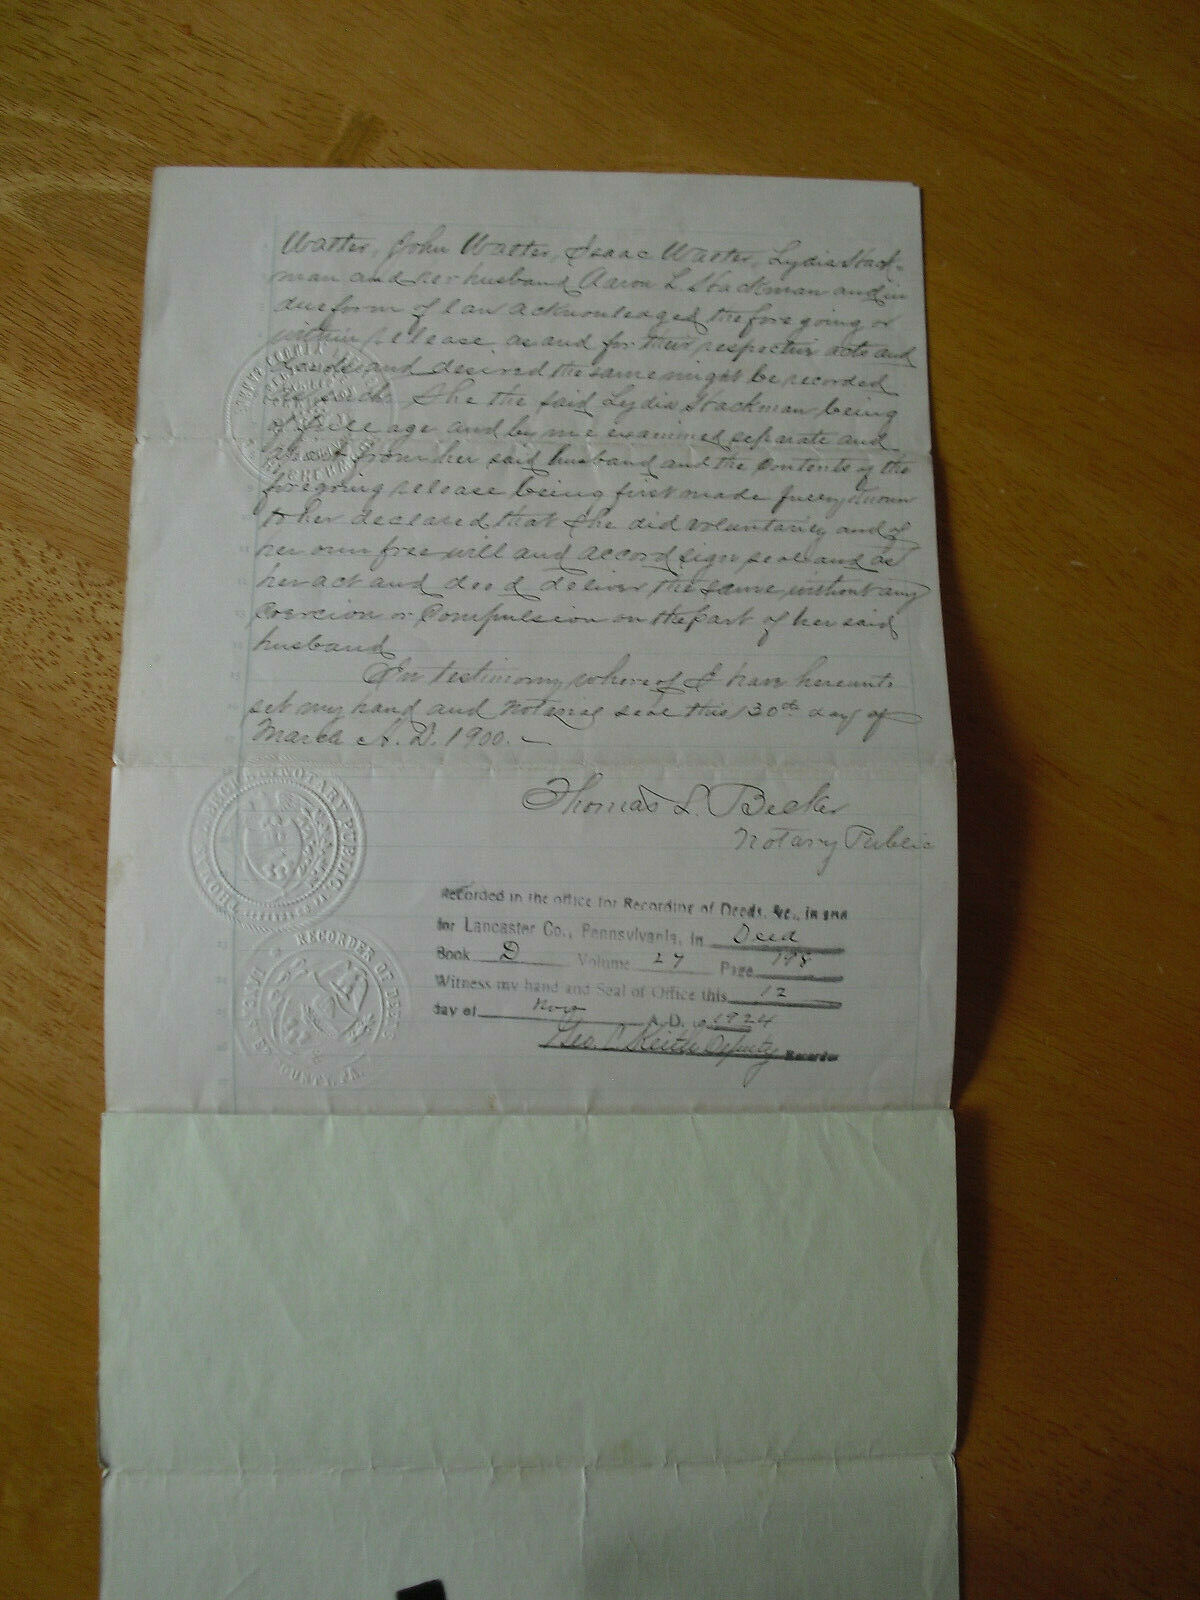 Walter, John Walter, Isaac Walter, Lydia Hack-
man and her husband Aaron L Hackman and in
due form of law acknowledged the foregoing or
within release as and for their respective acts and
deeds and desired the same might be recorded
as such. She the said Lydia Hackman being
of full age and by me examined separate and
apart from her said husband and the contents of the
foregoing release being first made fully known
to her declared that she did voluntarily and of
her own free will and accord sign seal and as
her act and deed deliver the same without any
Coercion or Compulsion on the part of her said
husband
In testimony whereof I have hereunto
set my hand and Notarial seal this 30th day of
March A. D. 1900.
Thomas L. Becker
Notary Public
NOTARY PUBLIC
Recorded in the office for Recording of Deeds, &c., in and
for Lancaster Co., Pennsylvania, in Deed
Book D Volume 27 Page
Witness my hand and Seal of Office this 12
day of Nov A.D. 1924
Geo. Keith Deputy Recorder
RECORDER OF DEEDS
COUNTY, PA.